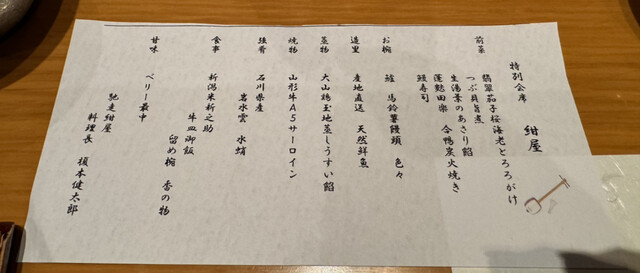 特別会席　紺屋
前菜　翡翠茄子桜海老とろろがけ
つぶ貝旨煮
生湯葉のあさり餡
蓬麩田楽　合鴨炭火焼き
鰻寿司
お椀　鱧　馬鈴薯饅頭　色々
造里　産地直送　天然鮮魚
蒸物　大山鶏玉地蒸しうすい餡
焼物　山形牛A5サーロイン
強肴　石川県産
岩水雲　水蛸
食事　新潟米新之助
牛皿御飯
留め椀　香の物
甘味　ベリー最中
馳走紺屋
料理長　榎本健太郎